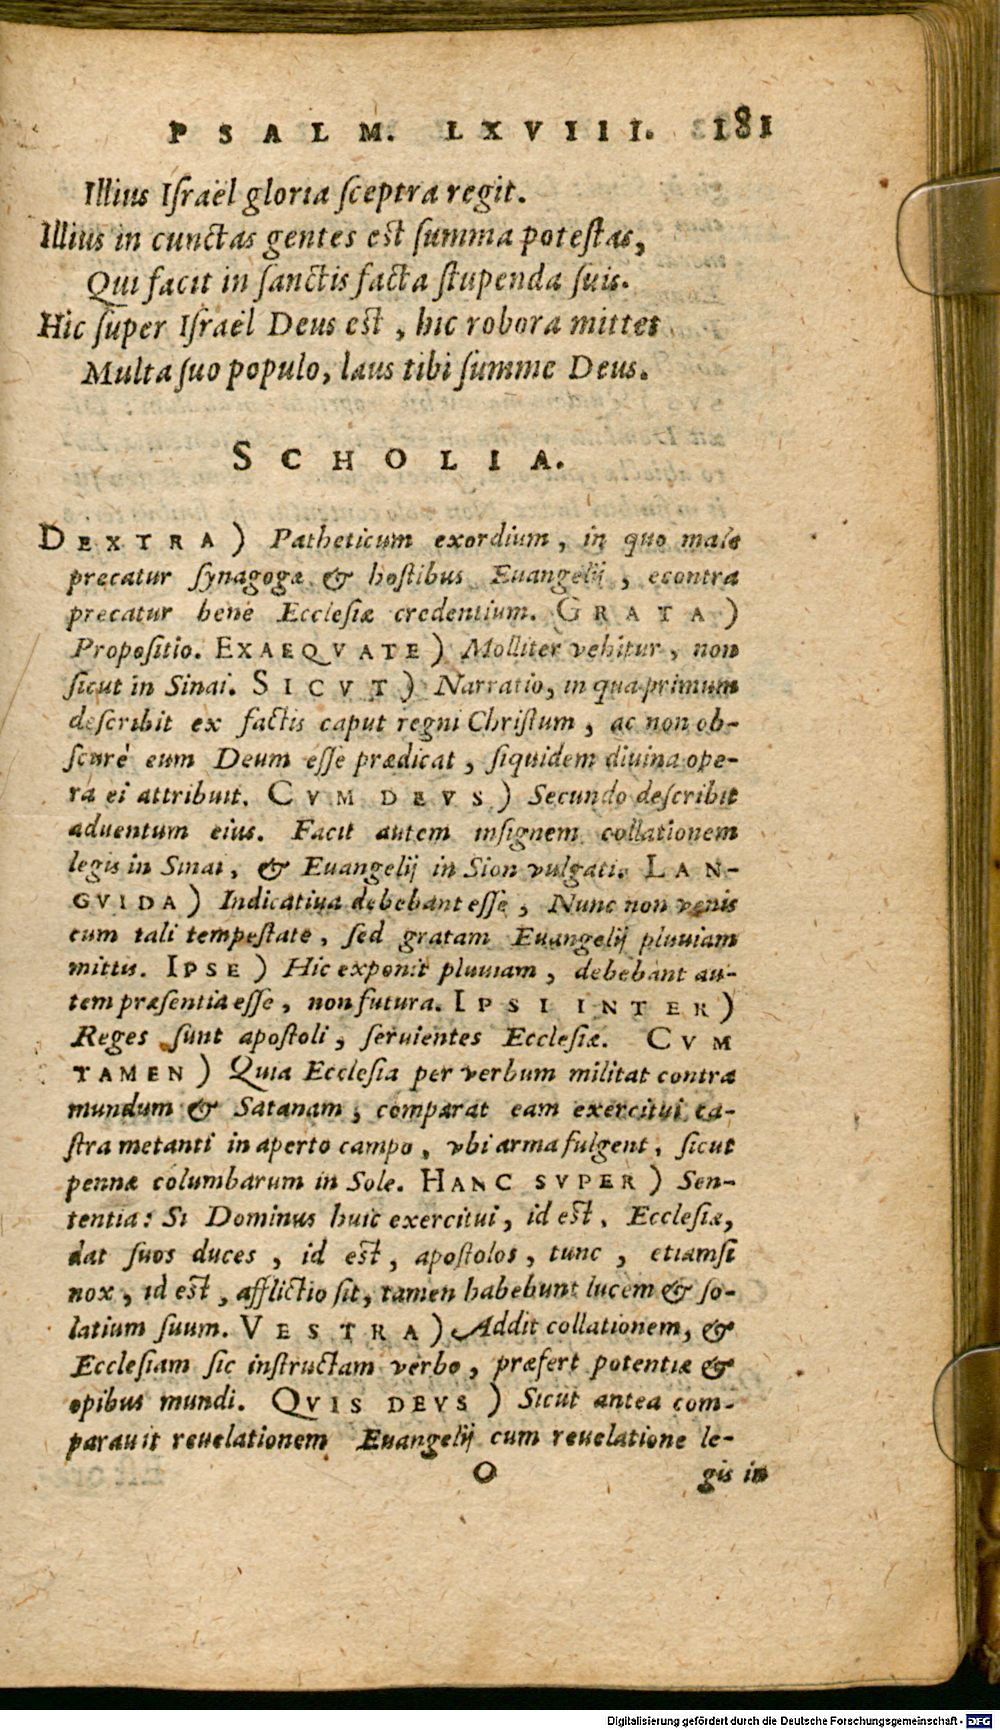 PSALM. LXVIII. 181
Illius Iſraël gloria ſceptra regit.
Illius in cunctas gentes est ſumma poteſtas,
Qui facit in ſanctis facta ſtupenda ſuis.
Hic ſuper Iſraël Deus est, hic robora mittet
Multa ſuo populo, laus tibi ſumme Deus.
SCHOLIA.
DEXTRA) Patheticum exordium, in quo male
precatur ſynagogæ & hoſtibus Euangelij, econtra
precatur bene Eccleſiæ credentium. GRATA)
Propoſitio. EXAEQVATE) Molliter vehitur, non
ſicut in Sinai. SICVT) Narratio, in qua primum
deſcribit ex factis caput regni Chriſtum, ac non ob-
ſcurè eum Deum eſſe prædicat, ſiquidem diuina ope-
ra ei attribuit. CVM DEVS) Secundo deſcribit
aduentum eius. Facit autem inſignem collationem
legis in Sinai, & Euangelij in Sion vulgati. LAN-
GVIDA) Indicatiua debebant eſſe, Nunc non venis
cum tali tempeſtate, ſed gratam Euangelij pluuiam
mittis. IPSE) Hic exponit pluuiam, debebant au-
tem præſentia eſſe, non futura. IPSI INTER)
Reges ſunt apoſtoli, ſeruientes Eccleſiæ. CVM
TAMEN) Quia Eccleſia per verbum militat contra
mundum & Satanam, comparat eam exercitui ca-
ſtra metanti in aperto campo, vbi arma fulgent, ſicut
pennæ columbarum in Sole. HANC SVPER) Sen-
tentia: Si Dominus huic exercitui, id est, Eccleſiæ,
dat ſuos duces, id est, apoſtolos, tunc, etiamſi
nox, id est, afflictio ſit, tamen habebunt lucem & ſo-
latium ſuum. VESTRA) Addit collationem, &
Eccleſiam ſic inſtructam verbo, præfert potentiæ &
opibus mundi. QVIS DEVS) Sicut antea com-
parauit reuelationem Euangelij cum reuelatione le-
O gis in
Digitalisierung gefördert durch die Deutsche Forschungsgemeinschaft - DFG